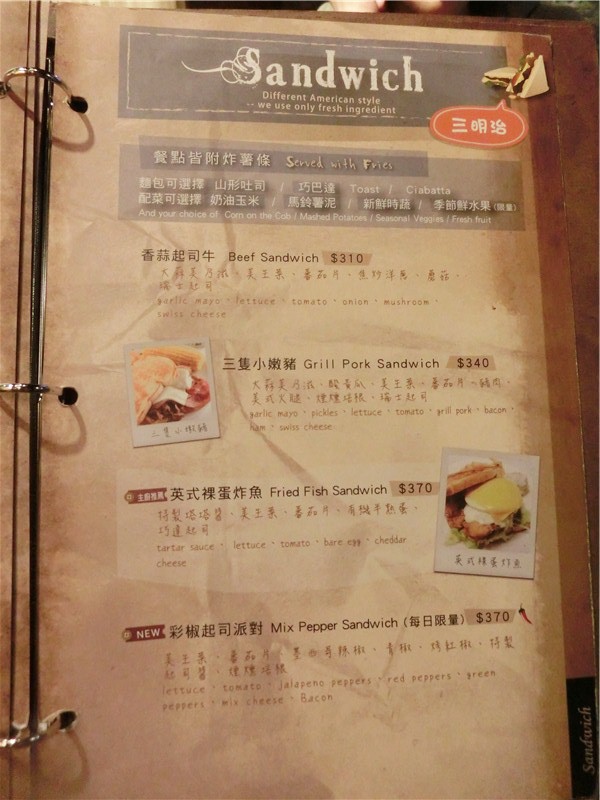 Sandwich
Different American style
-- we use only fresh ingredient
三明治
餐點皆附炸薯條 Served with Fries
麵包可選擇 山形吐司 / 巧巴達 Toast / Ciabatta
配菜可選擇 奶油玉米 / 馬鈴薯泥 / 新鮮時蔬 / 季節鮮水果(限量)
And your choice of Corn on the Cob / Mashed Potatoes / Seasonal Veggies / Fresh fruit
香蒜起司牛 Beef Sandwich $310
大蒜美乃滋、美生菜、番茄片、焦炒洋蔥、蘑菇、
瑞士起司
garlic mayo、lettuce、tomato、onion、mushroom、
swiss cheese
三隻小嫩豬 Grill Pork Sandwich $340
大蒜美乃滋、酸黃瓜、美生菜、番茄片、豬肉、
美式火腿、煙燻培根、瑞士起司
garlic mayo、pickles、lettuce、tomato、grill pork、bacon、
ham、swiss cheese
三隻小嫩豬
主廚推薦 英式裸蛋炸魚 Fried Fish Sandwich $370
特製塔塔醬、美生菜、番茄片、有機半熟蛋、
巧達起司
tartar sauce、lettuce、tomato、bare egg、cheddar
cheese
英式裸蛋炸魚
NEW 彩椒起司派對 Mix Pepper Sandwich (每日限量) $370
美生菜、番茄片、墨西哥辣椒、青椒、烤紅椒、特製
起司醬、煙燻培根
lettuce、tomato、jalapeno peppers、red peppers、green
peppers、mix cheese、Bacon
Sandwich